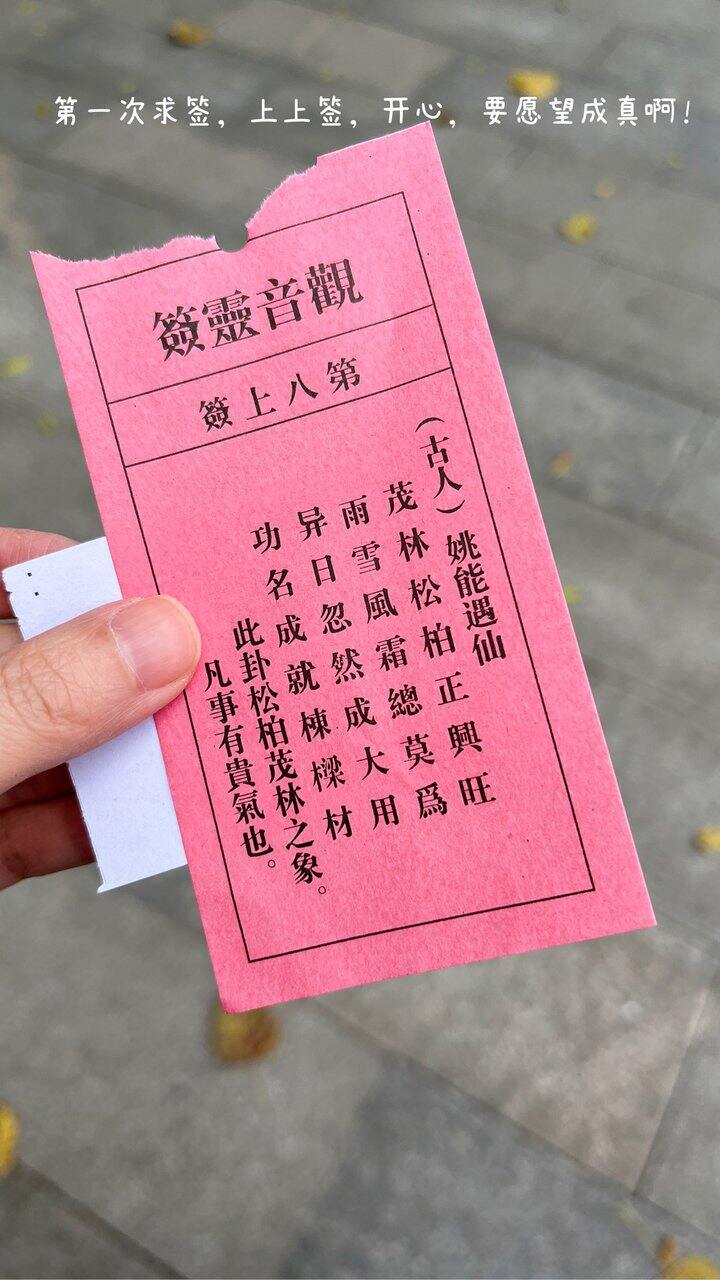 第一次求签，上上签，开心，要愿望成真啊！
觀音靈簽
第八上簽
（古人）姚能遇仙
茂林松柏正興旺
雨雪風霜總莫爲
异日忽然成大用
功名成就棟樑材
此卦松柏茂林之象。
凡事有貴氣也。